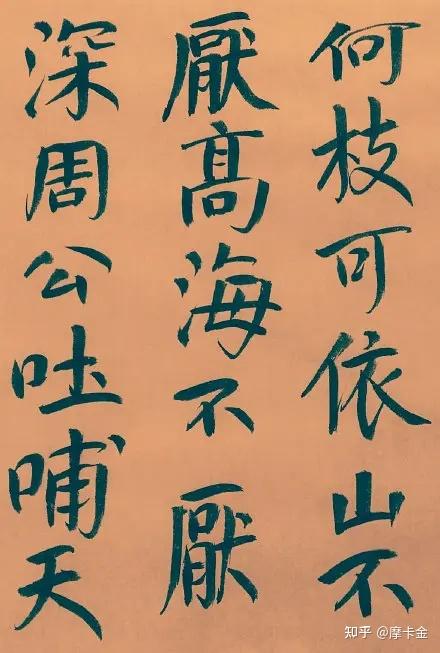 何枝可依山不
厭高海不厭
深周公吐哺天
知乎 @摩卡金